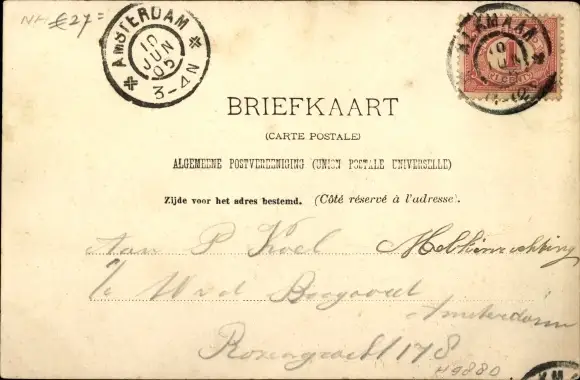 NH €27=
AMSTERDAM
10
JUN
05
3-4N
ALKMAAR
10
1
BRIEFKAART
(CARTE POSTALE)
ALGEMEENE POSTVEREENIGING (UNION POSTALE UNIVERSELLE)
Zijde voor het adres bestemd. (Côté réservé à l'adresse).
Aan P Kroel Melkinrichting
Amsterdam
Rozengracht 178
H9880